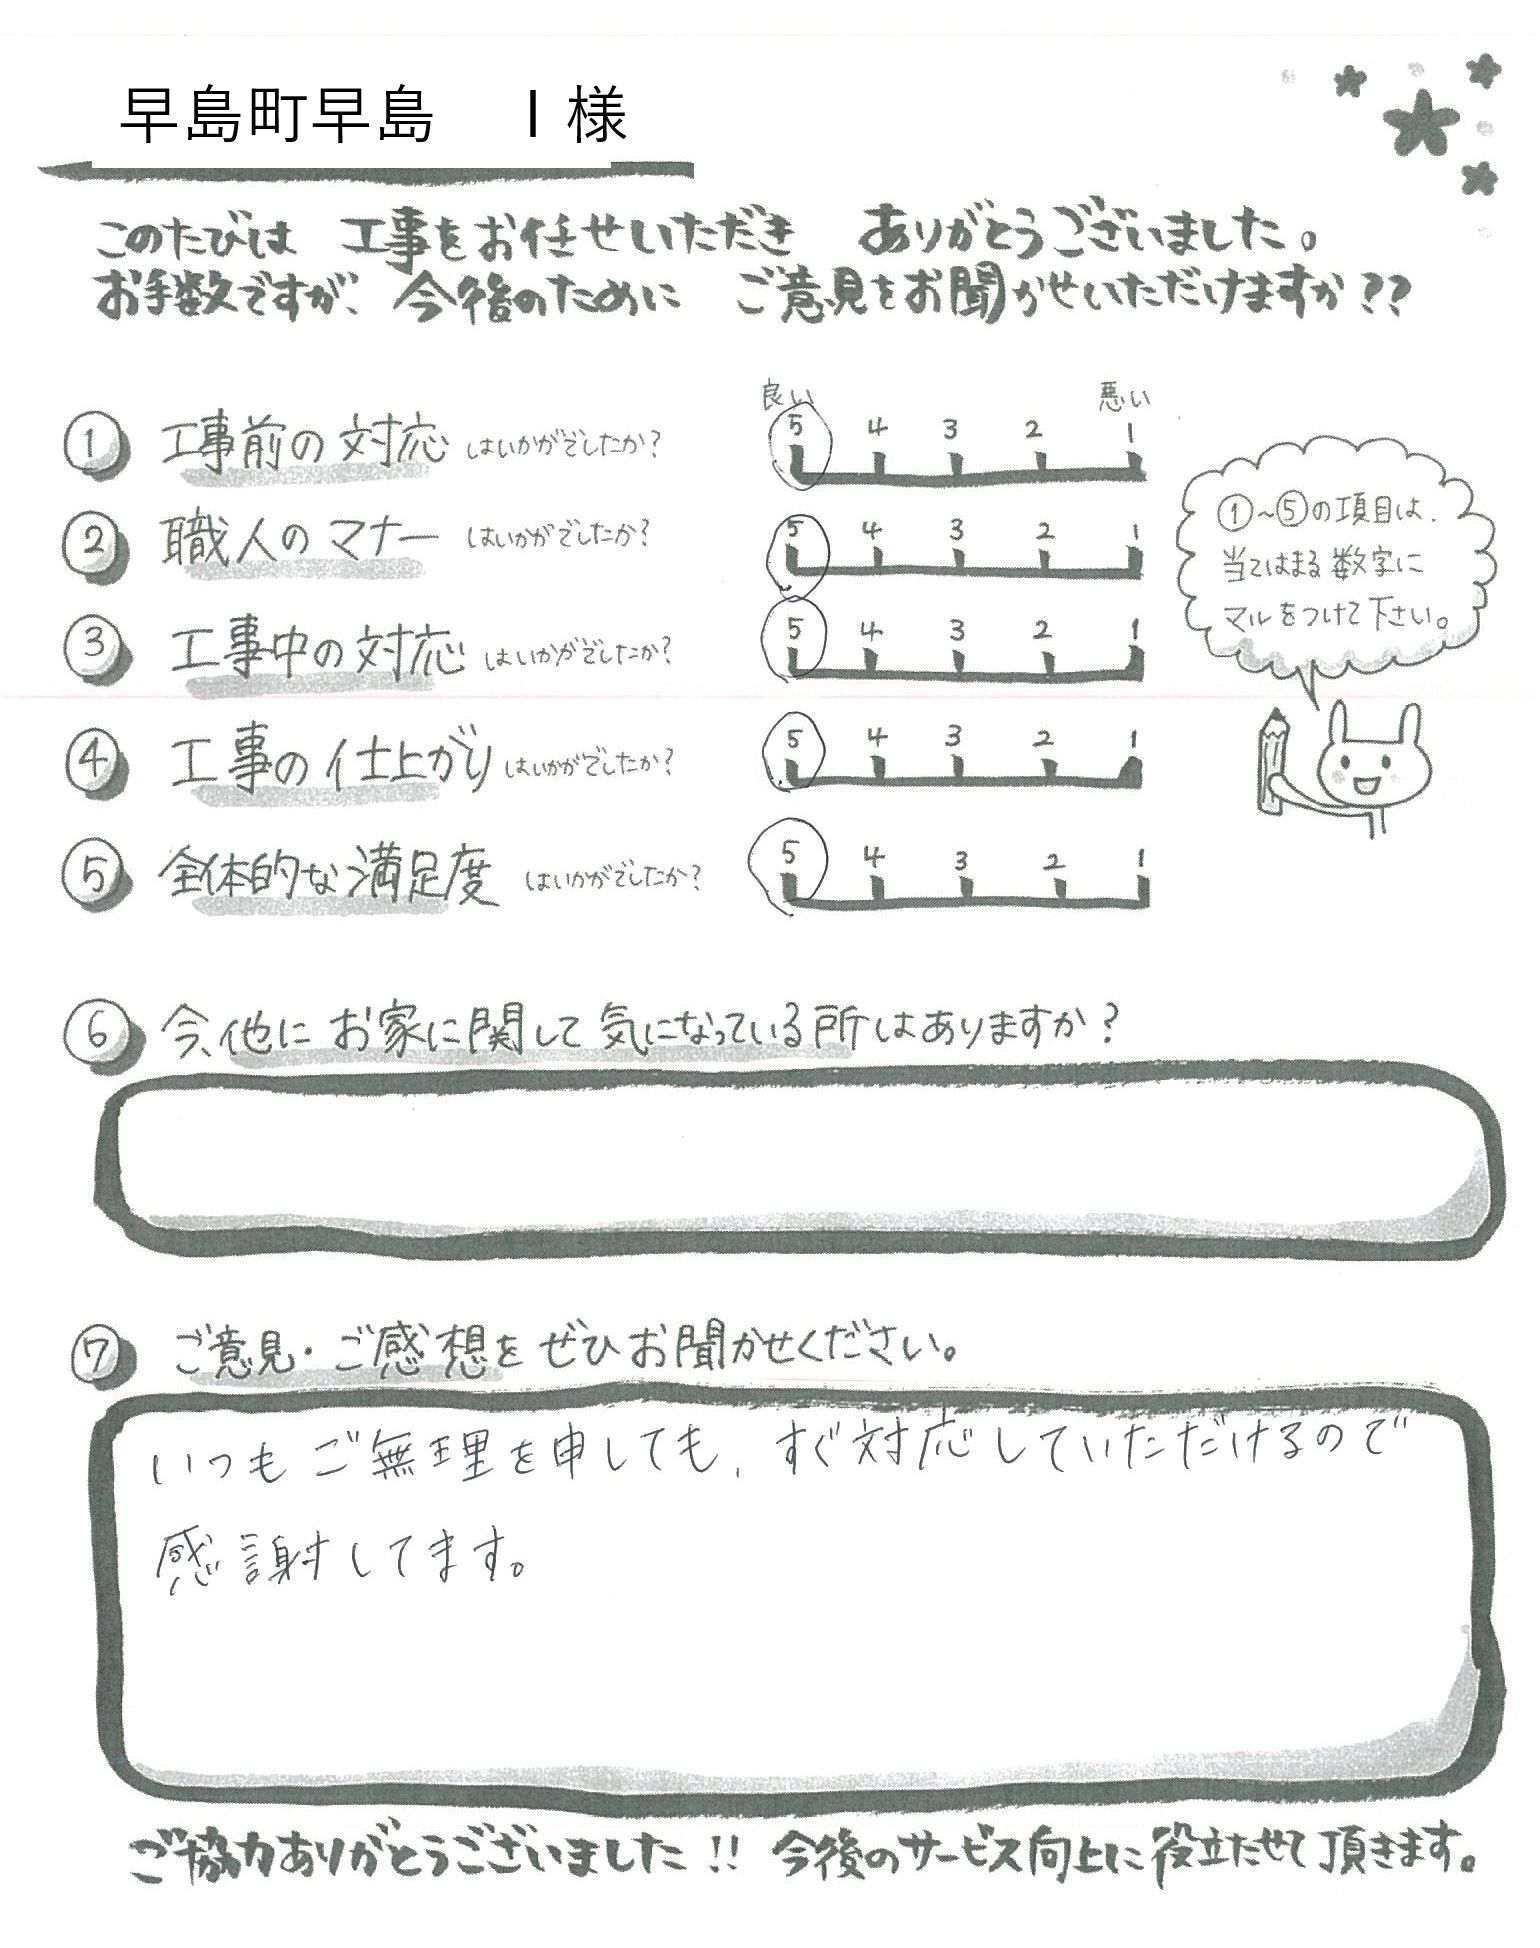 早島町早島　I 様
このたびは 工事をお任せいただき ありがとうございました。
お手数ですが、今後のために ご意見をお聞かせいただけますか??
良い 悪い
① 工事前の対応 はいかがでしたか? 5 4 3 2 1
② 職人のマナー はいかがでしたか? 5 4 3 2 1
③ 工事中の対応 はいかがでしたか? 5 4 3 2 1
④ 工事の仕上がり はいかがでしたか? 5 4 3 2 1
⑤ 全体的な満足度 はいかがでしたか? 5 4 3 2 1
①~⑤の項目は、
当てはまる数字に
マルをつけて下さい。
⑥ 今、他にお家に関して気になっている所はありますか?
⑦ ご意見・ご感想をぜひお聞かせください。
いつもご無理を申しても、すぐ対応していただけるので
感謝してます。
ご協力ありがとうございました!! 今後のサービス向上に役立たせて頂きます。